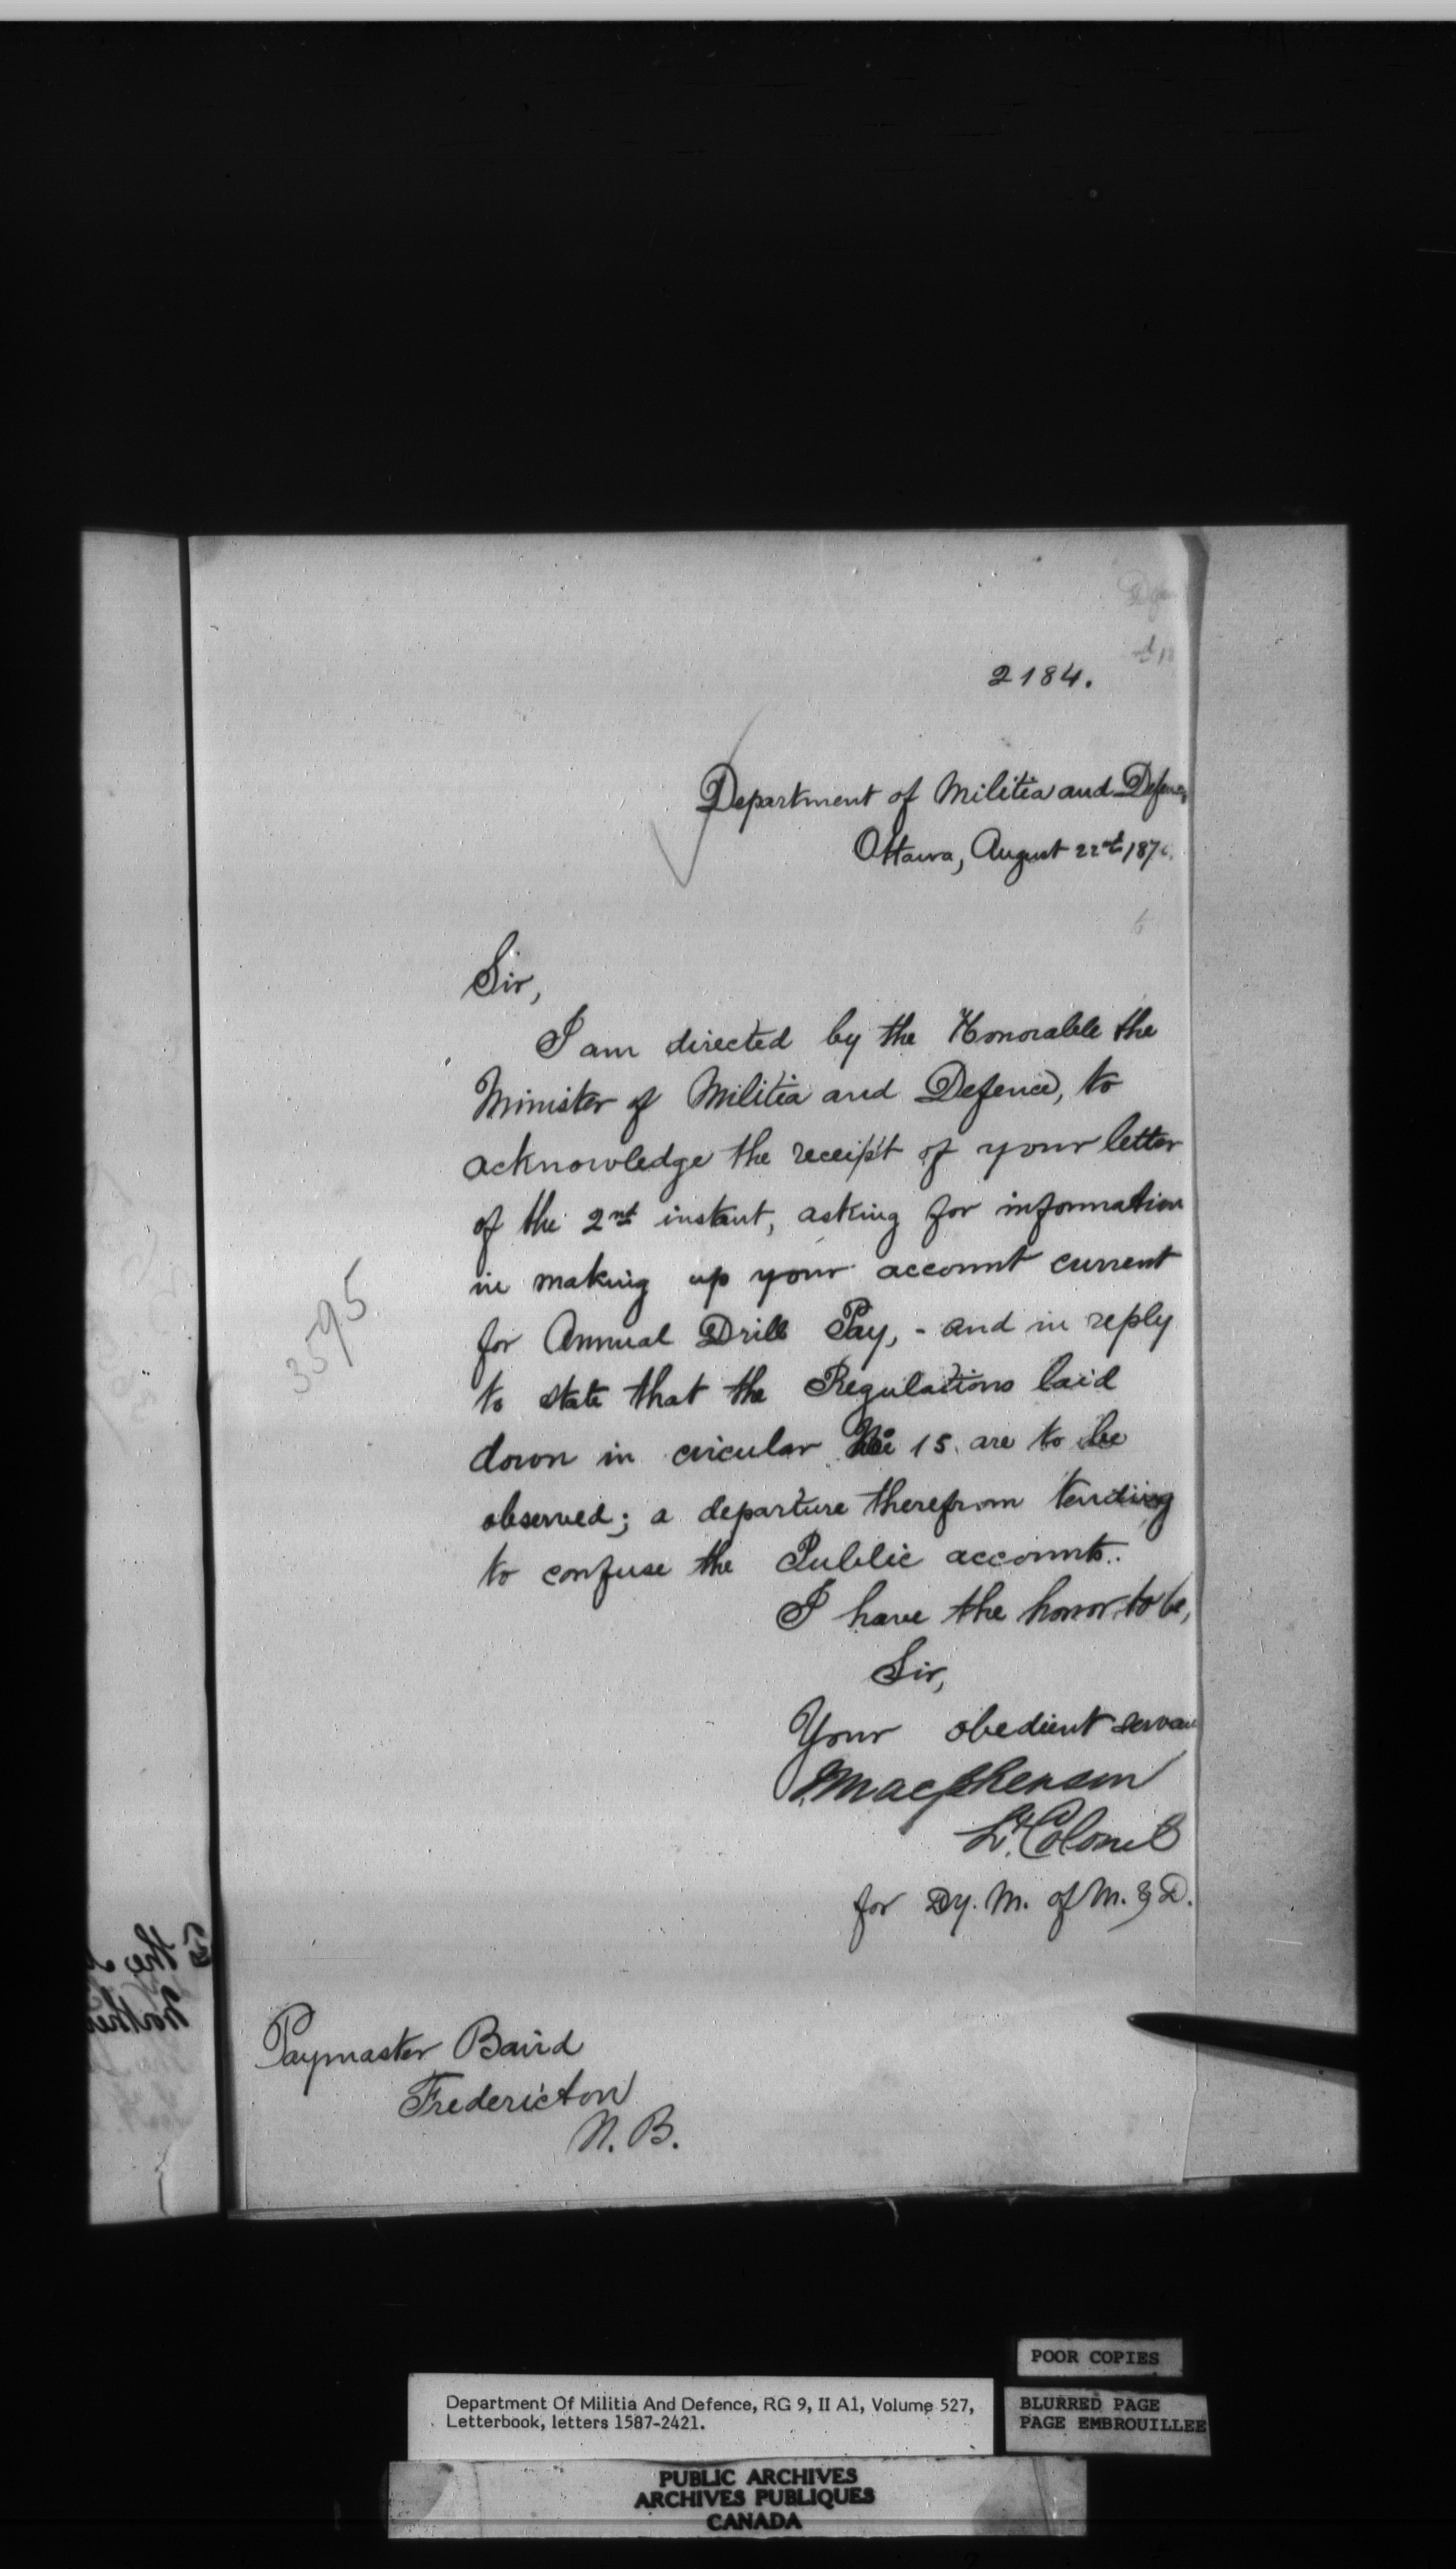 2184.
Department of Militia and Defence
Ottawa, August 22nd 187
Sir,
I am directed by the Honorable the
Minister of Militia and Defence, to
acknowledge the receipt of your letter
of the 2nd instant, asking for information
in making up your account current
for Annual Drill Pay, - and in reply
to state that the Regulations laid
down in circular No 15 are to be
observed; a departure therefrom tending
to confuse the Public accounts.
I have the honor to be,
Sir,
Your obedient servan
Macpherson
Lt. Colonel
for Dy. M. of M. & D.
3595
Paymaster Baird
Fredericton
N. B.
POOR COPIES
Department Of Militia And Defence, RG 9, II A1, Volume 527,
Letterbook, letters 1587-2421.
BLURRED PAGE
PAGE EMBROUILLEE
PUBLIC ARCHIVES
ARCHIVES PUBLIQUES
CANADA